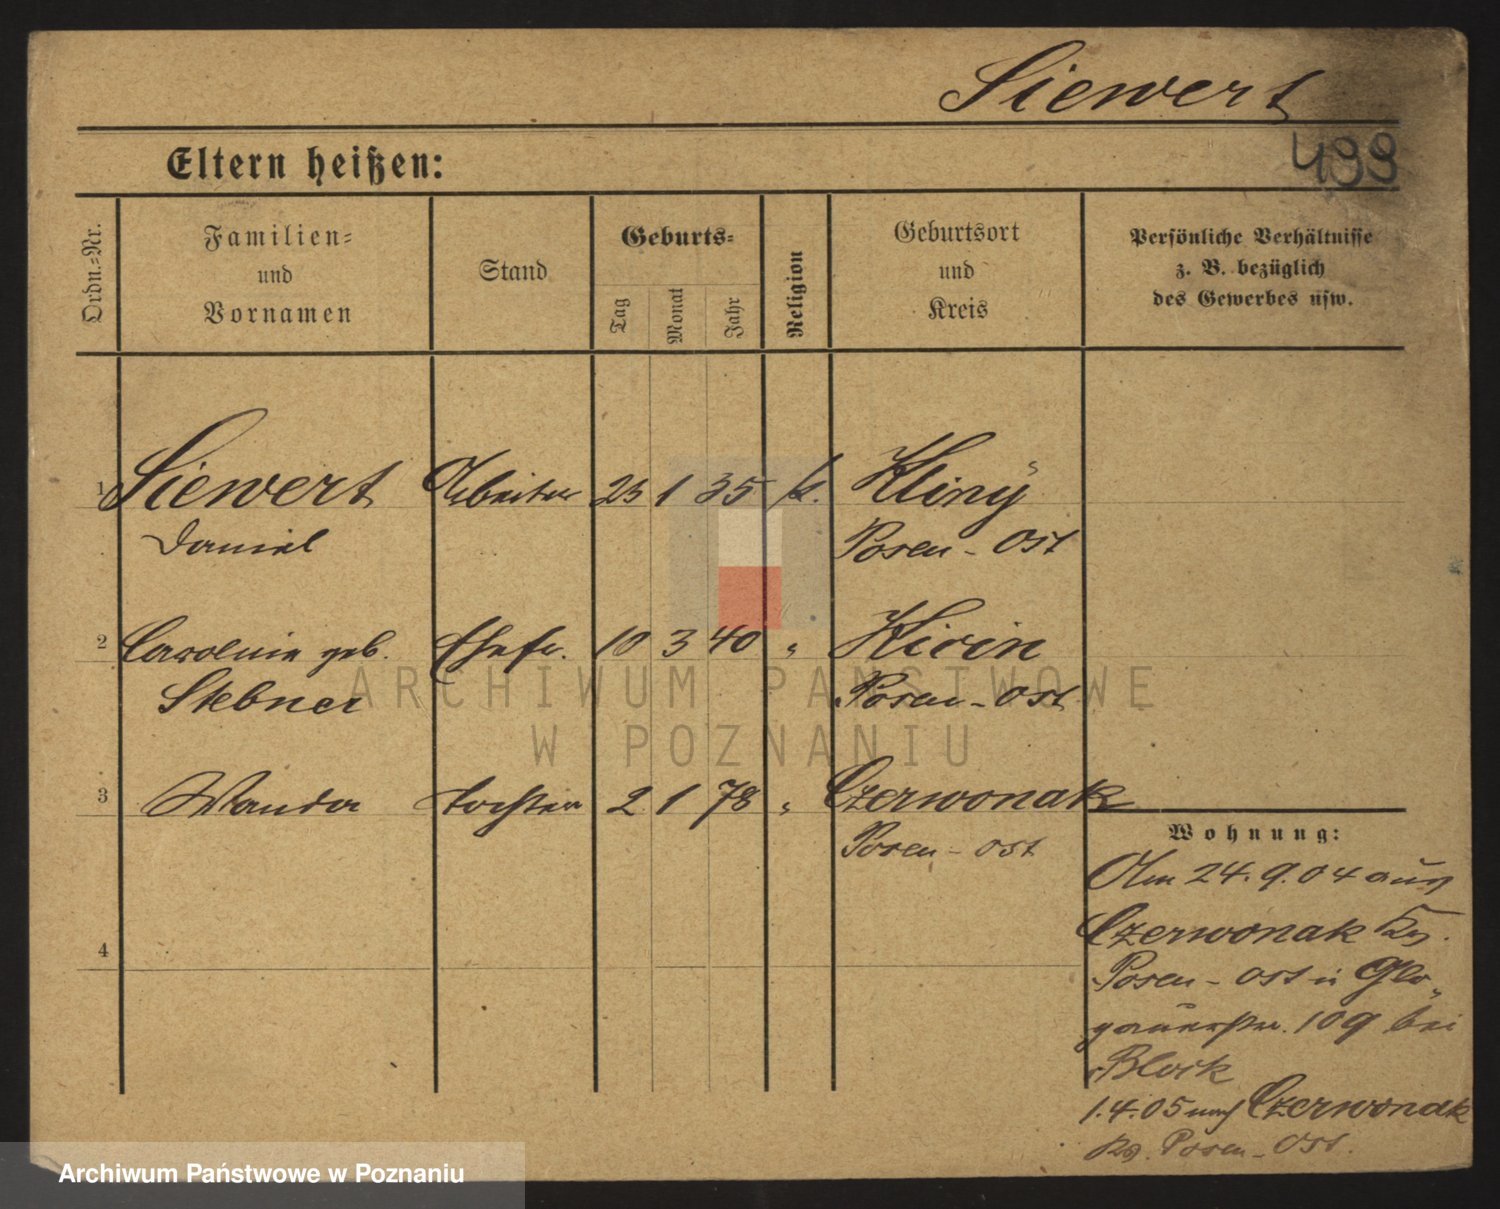 Siewert
499
Eltern heißen:
Ordn.=Nr.
Familien=
und
Vornamen
Stand
Geburts=
Tag
Monat
Jahr
Religion
Geburtsort
und
Kreis
Persönliche Verhältnisse
z. B. bezüglich
des Gewerbes usw.
1 Siewert Arbeiter 23 1 35 k. Kliny
Daniel Posen - Ost
2 Caroline geb. Ehefr. 10 3 40 " Kicin
Stebner Posen - Ost
3 Wanda Tochter 2 1 78 " Czerwonak
Posen - Ost
4
Wohnung:
Am 24.9.04 aus
Czerwonak Krs.
Posen - Ost in Glo=
gauerstr. 109 bei
Block
1.4.05 nach Czerwonak
Krs. Posen - Ost.
ARCHIWUM PAŃSTWOWE
W POZNANIU
Archiwum Państwowe w Poznaniu